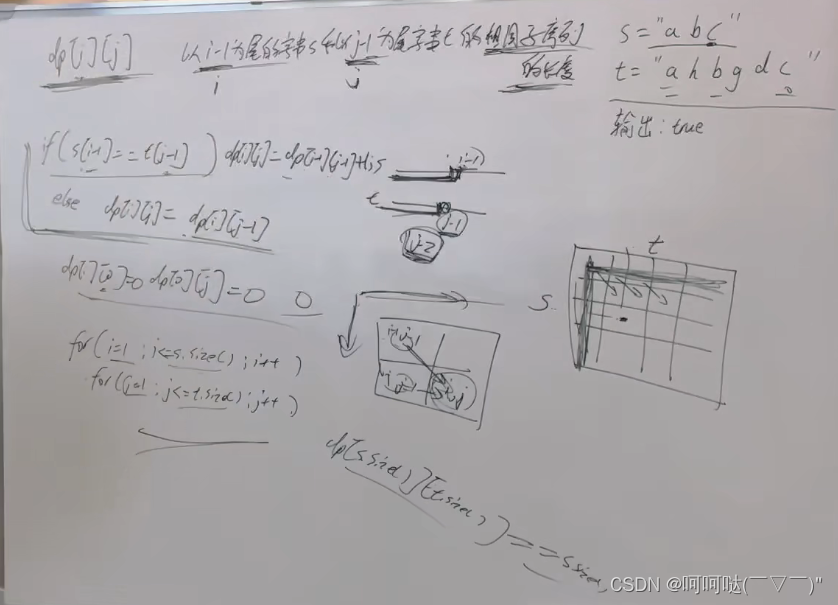 dp[i][j] 以i-1为尾的字串s和以j-1为尾字串t的相同子序列
的长度
i j
s="a b c"
t="a h b g d c"
输出: true
if(s[i-1]==t[j-1]) dp[i][j]=dp[i-1][j-1]+1;
else dp[i][j]=dp[i][j-1]
s i-1
t j-1
j-2
dp[i][0]=0 dp[0][j]=0 0
for(i=1;i<=s.size();i++)
for(j=1;j<=t.size();j++)
i-1,j-1
i,j-1 i,j
t
s
dp[s.size()][t.size()]==s.size()
CSDN @呵呵哒(￣▽￣)"